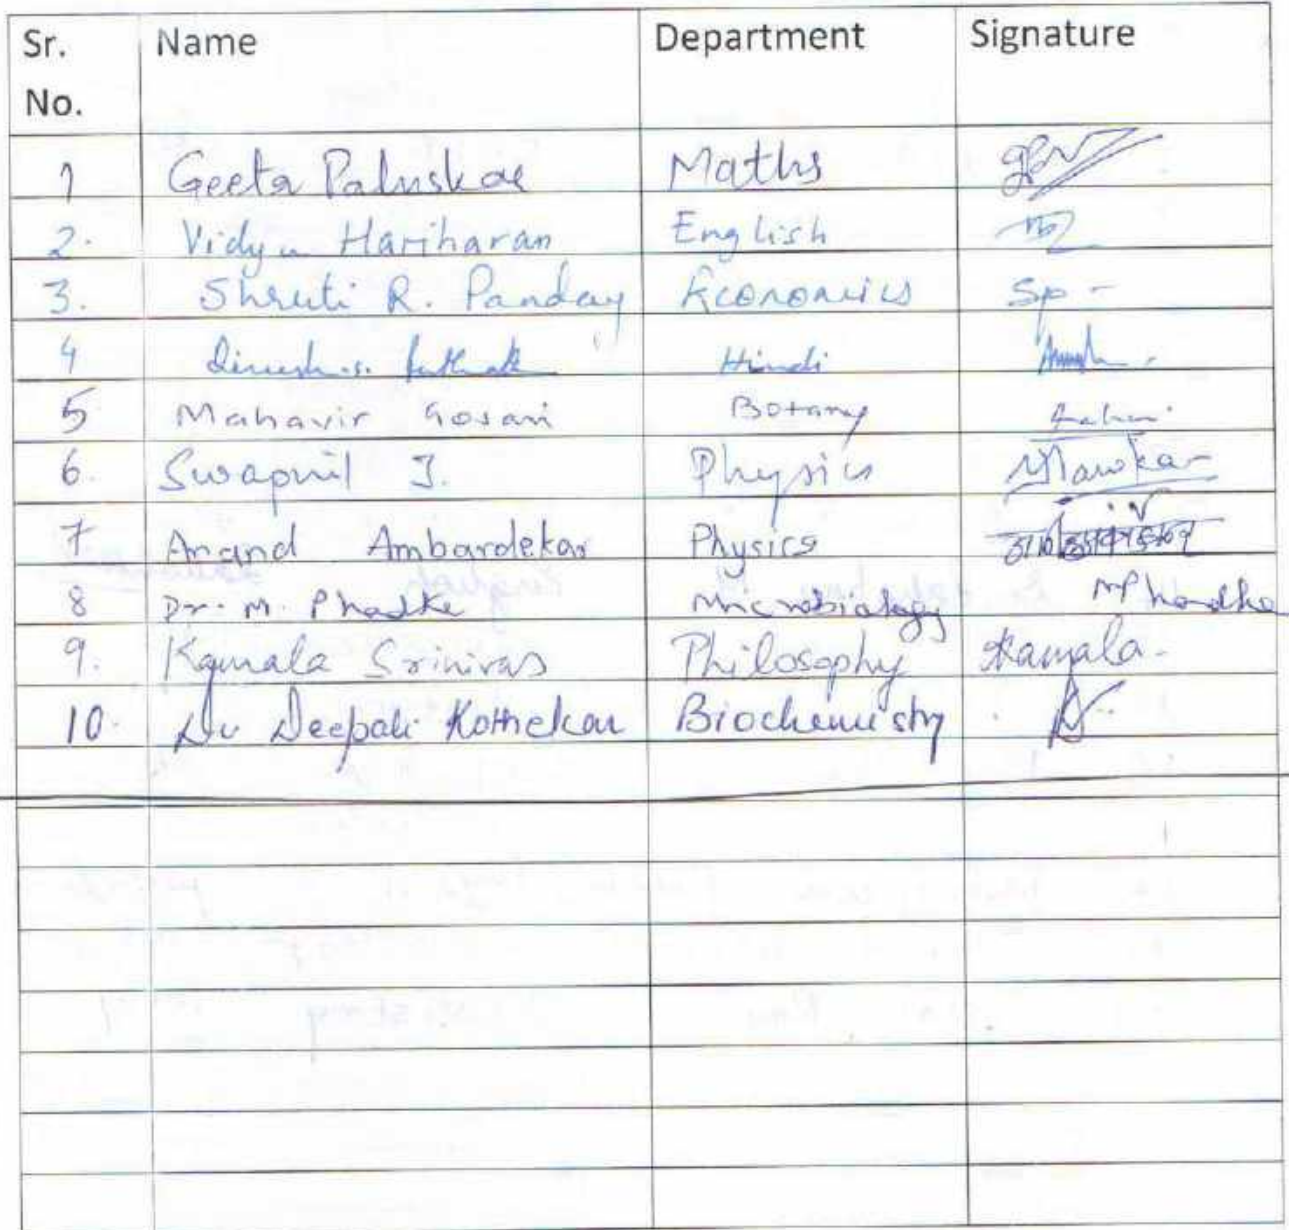 Sr. No. Name Department Signature
1 Geeta Paluskar Maths
2. Vidya Hariharan English
3. Shruti R. Panday Economics Sp-
4 Dinesh.s. Pathak Hindi
5 Mahavir Gosavi Botany
6. Swapnil J. Physics
7 Anand Ambardekar Physics
8 Dr. M. Phadke Microbiology
9. Kamala Srinivas Philosophy Kamala-
10. Dr Deepali Kothekar Biochemistry